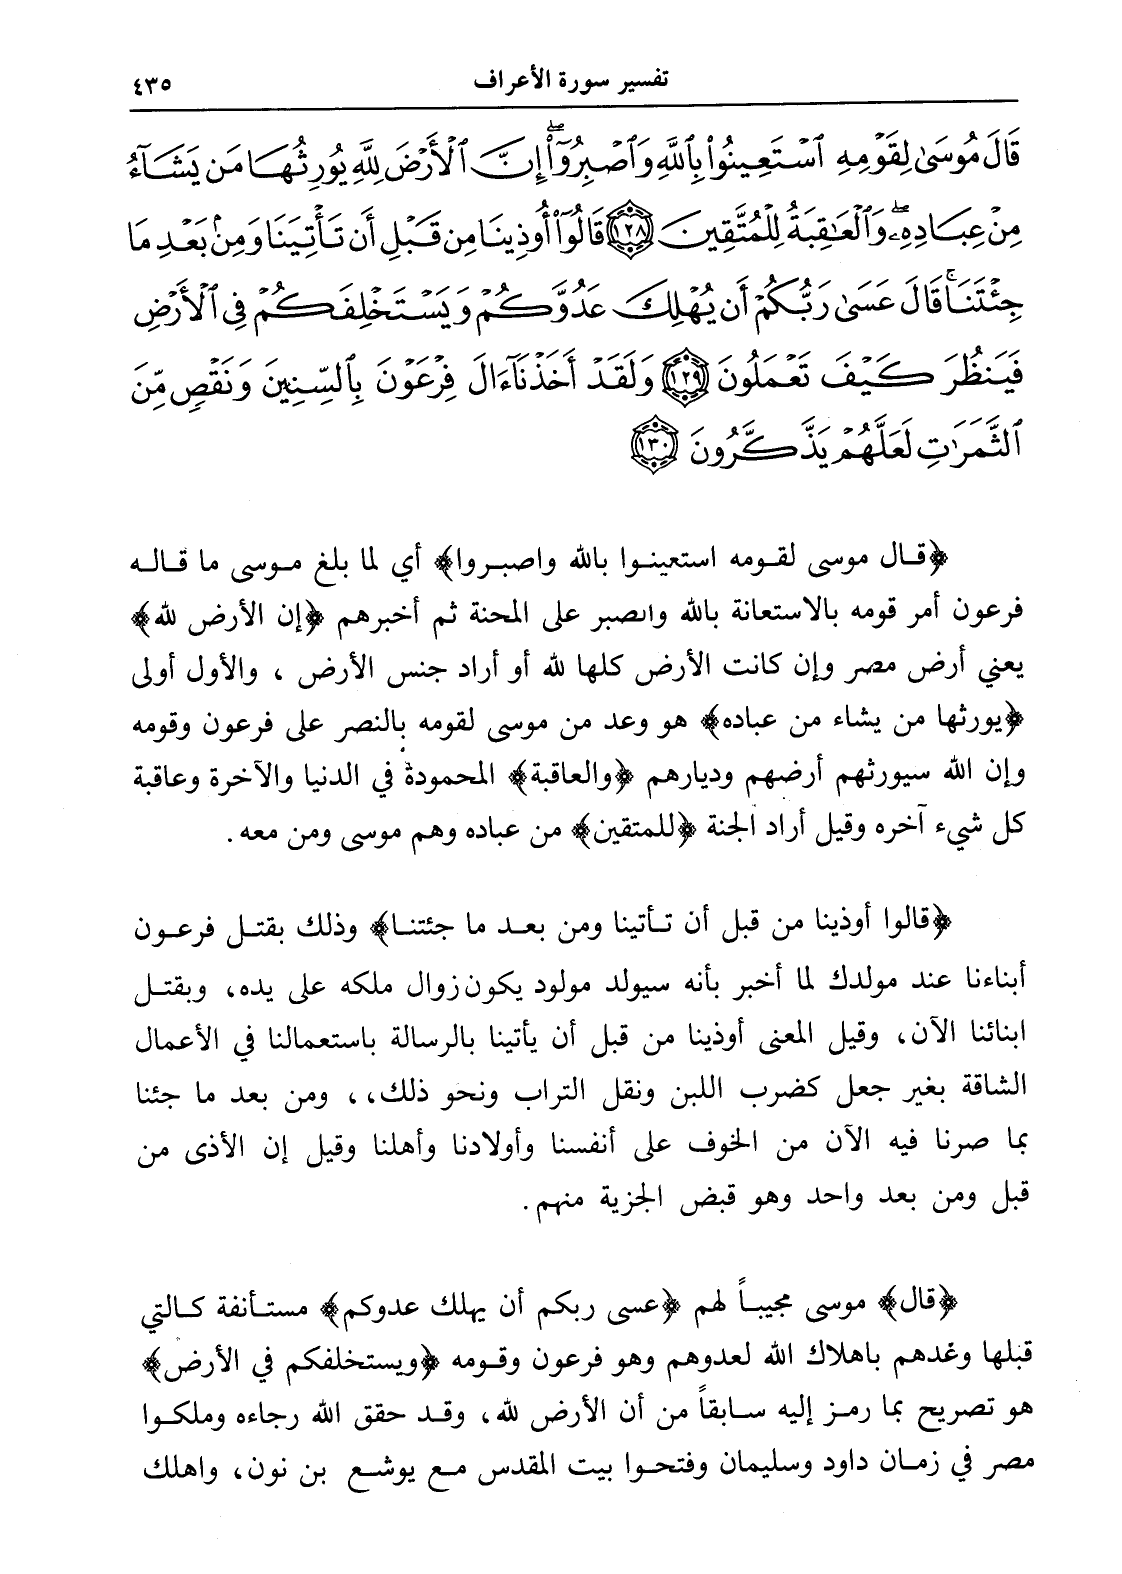 تفسير سورة الأعراف ٤٣٥
قَالَ مُوسَىٰ لِقَوْمِهِ ٱسْتَعِينُوا۟ بِٱللَّهِ وَٱصْبِرُوٓا۟ ۖ إِنَّ ٱلْأَرْضَ لِلَّهِ يُورِثُهَا مَن يَشَآءُ
مِنْ عِبَادِهِۦ ۖ وَٱلْعَـٰقِبَةُ لِلْمُتَّقِينَ ﴿١٢٨﴾ قَالُوٓا۟ أُوذِينَا مِن قَبْلِ أَن تَأْتِيَنَا وَمِنۢ بَعْدِ مَا
جِئْتَنَا ۚ قَالَ عَسَىٰ رَبُّكُمْ أَن يُهْلِكَ عَدُوَّكُمْ وَيَسْتَخْلِفَكُمْ فِى ٱلْأَرْضِ
فَيَنظُرَ كَيْفَ تَعْمَلُونَ ﴿١٢٩﴾ وَلَقَدْ أَخَذْنَآ ءَالَ فِرْعَوْنَ بِٱلسِّنِينَ وَنَقْصٍ مِّنَ
ٱلثَّمَرَٰتِ لَعَلَّهُمْ يَذَّكَّرُونَ ﴿١٣٠﴾
﴿قال موسى لقومه استعينوا بالله واصبروا﴾ أي لما بلغ موسى ما قاله
فرعون أمر قومه بالاستعانة بالله والصبر على المحنة ثم أخبرهم ﴿إن الأرض لله﴾
يعني أرض مصر وإن كانت الأرض كلها لله أو أراد جنس الأرض ، والأول أولى
﴿يورثها من يشاء من عباده﴾ هو وعد من موسى لقومه بالنصر على فرعون وقومه
وإن الله سيورثهم أرضهم وديارهم ﴿والعاقبة﴾ المحمودة في الدنيا والآخرة وعاقبة
كل شيء آخره وقيل أراد الجنة ﴿للمتقين﴾ من عباده وهم موسى ومن معه.
﴿قالوا أوذينا من قبل أن تأتينا ومن بعد ما جئتنا﴾ وذلك بقتل فرعون
أبناءنا عند مولدك لما أخبر بأنه سيولد مولود يكون زوال ملكه على يده، وبقتل
ابنائنا الآن، وقيل المعنى أوذينا من قبل أن يأتينا بالرسالة باستعمالنا في الأعمال
الشاقة بغير جعل كضرب اللبن ونقل التراب ونحو ذلك،، ومن بعد ما جئنا
بما صرنا فيه الآن من الخوف على أنفسنا وأولادنا وأهلنا وقيل إن الأذى من
قبل ومن بعد واحد وهو قبض الجزية منهم.
﴿قال﴾ موسى مجيباً لهم ﴿عسى ربكم أن يهلك عدوكم﴾ مستأنفة كالتي
قبلها وعدهم باهلاك الله لعدوهم وهو فرعون وقومه ﴿ويستخلفكم في الأرض﴾
هو تصريح بما رمز إليه سابقاً من أن الأرض لله، وقد حقق الله رجاءه وملكوا
مصر في زمان داود وسليمان وفتحوا بيت المقدس مع يوشع بن نون، واهلك